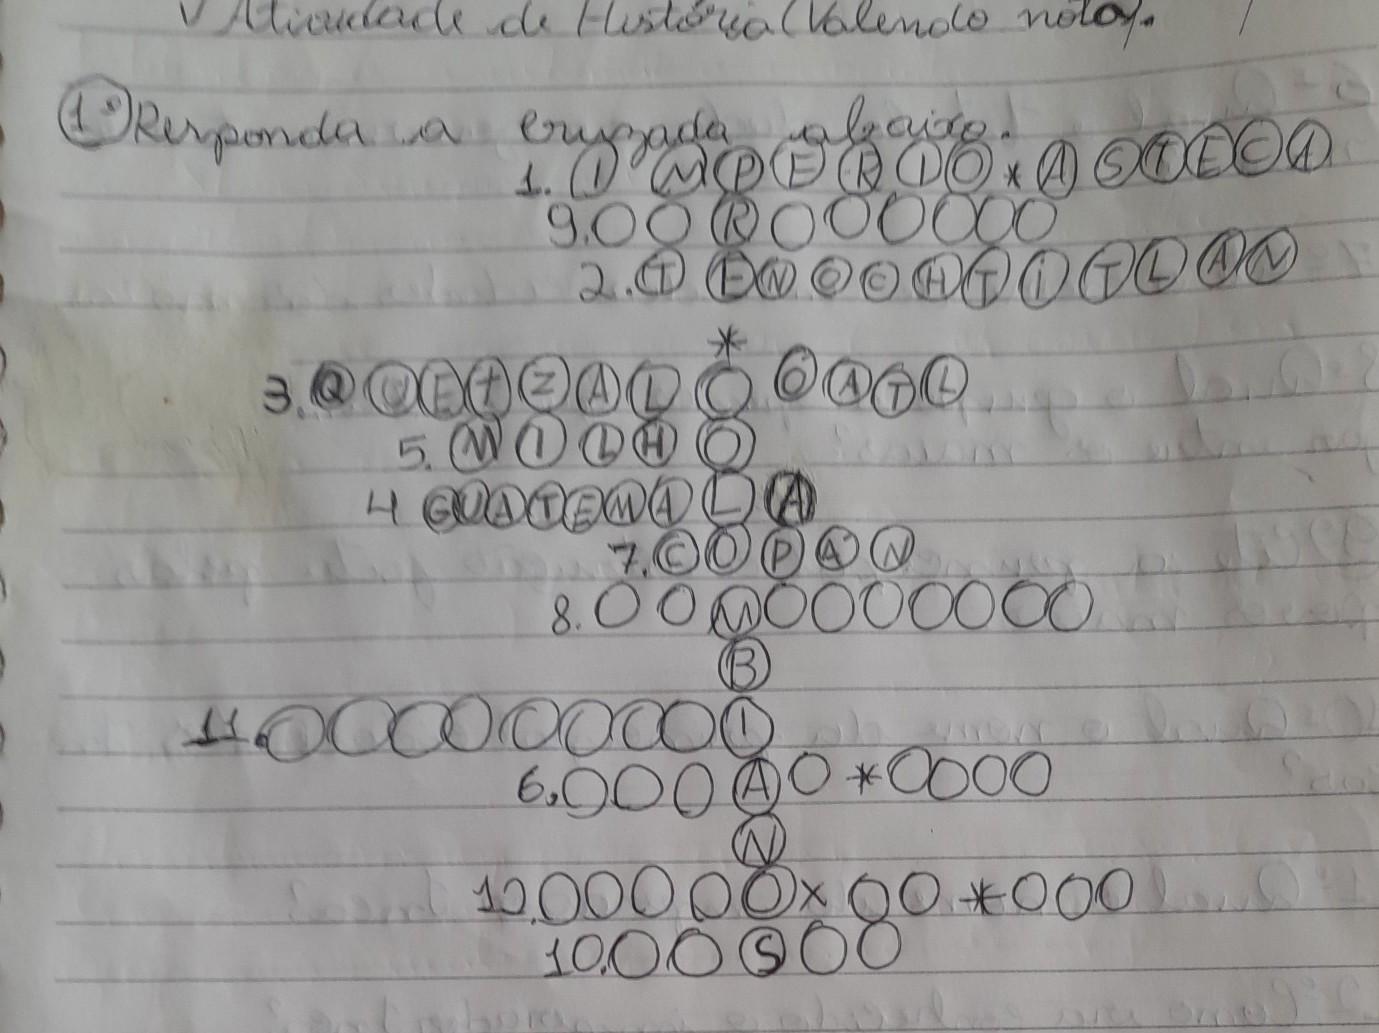 Atividade de História (Valendo nota).
1º Responda a cruzada abaixo.
1. I M P E R I O * A S T E C A
9. O O R O O O O O O
2. T E N O C H T I T L A N
*
3. Q U E T Z A L C O A T L
5. M I L H O
4 G U A T E M A L A
7. C O P A N
8. O O M O O O O O O O
B
11. O O O O O O O O I
6. O O O A O * O O O O
N
10. O O O O O x O O * O O O
10. O O S O O